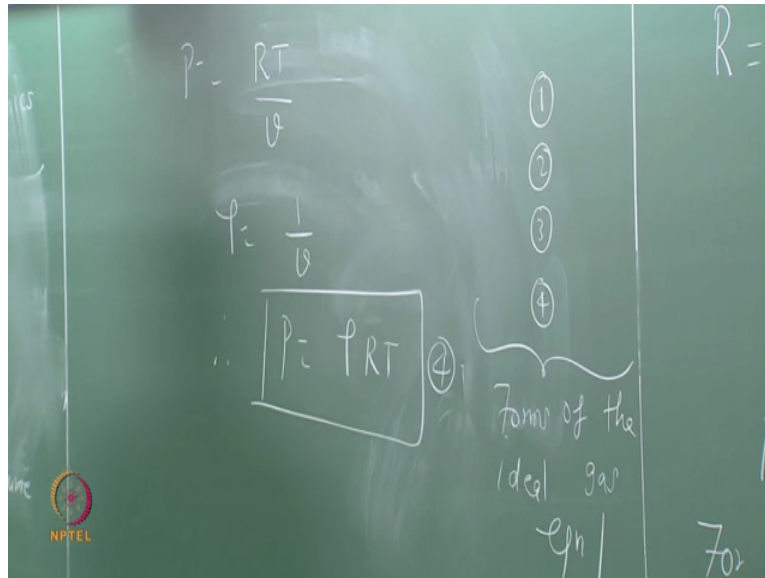 P = RT / v
ρ = 1 / v
∴ P = ρRT ④
①
②
③
④
Forms of the
ideal gas
Eqn
R =
For
NPTEL